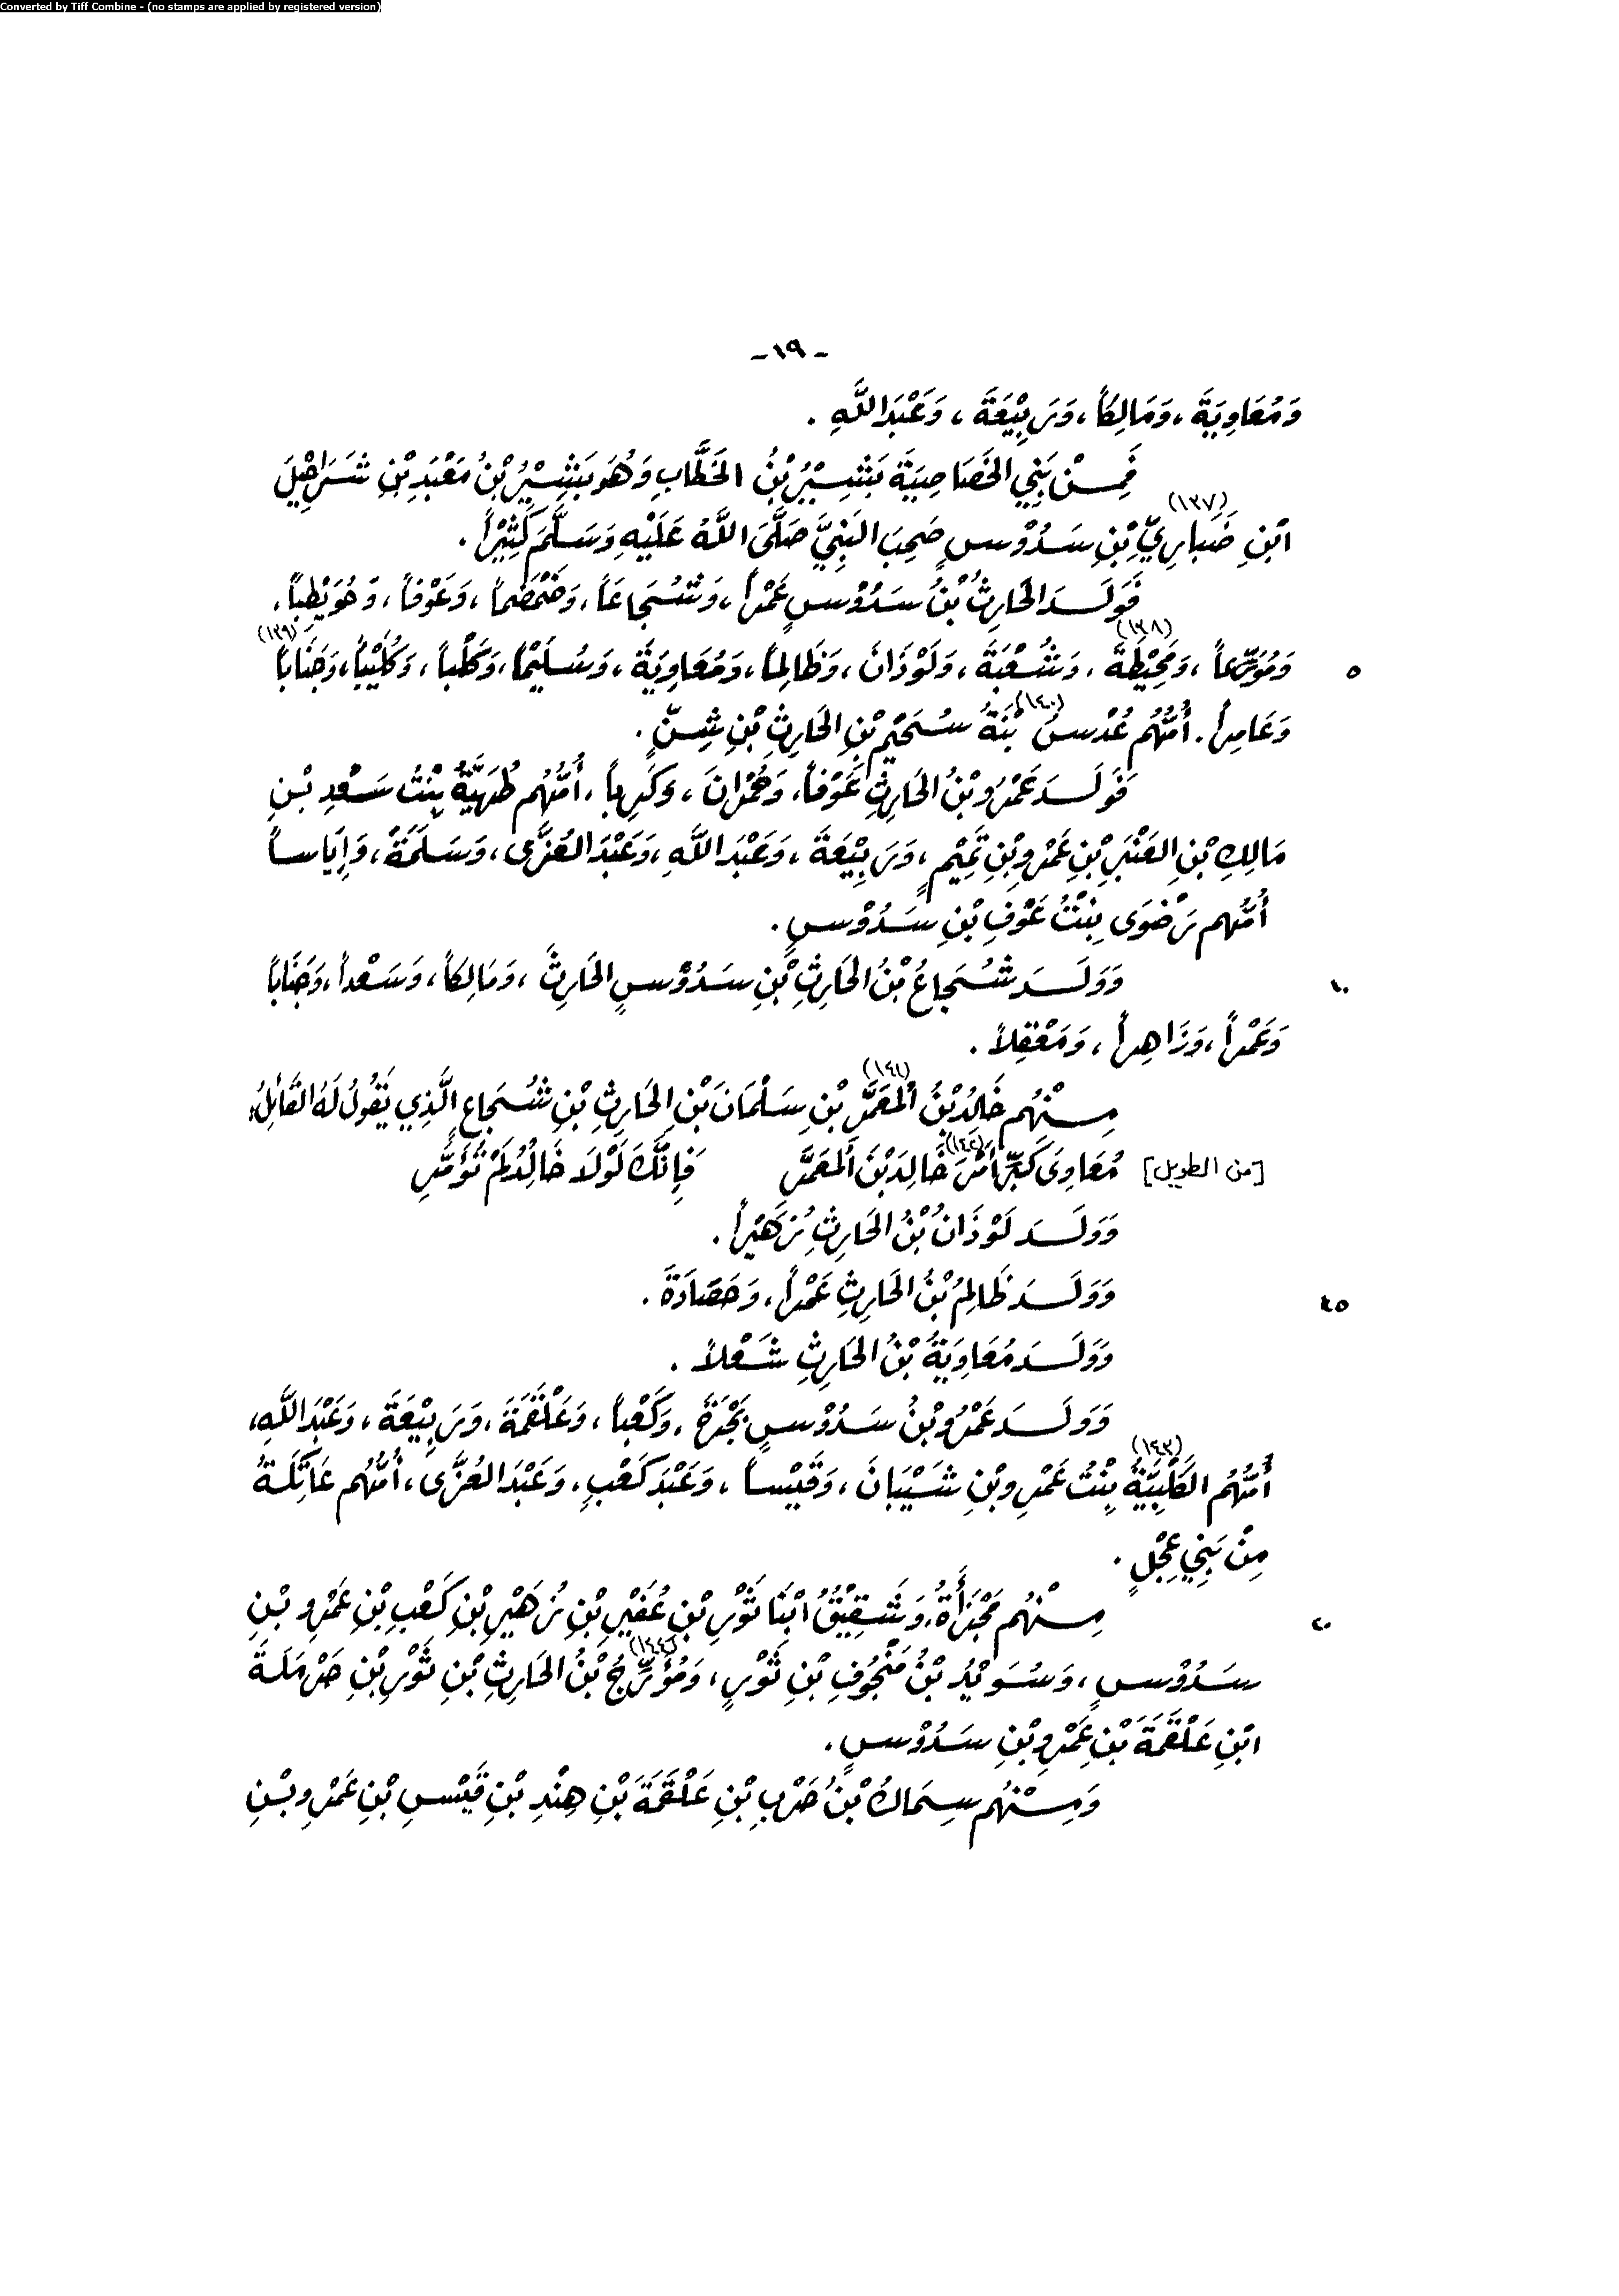 Converted by Tiff Combine - (no stamps are applied by registered version)
- ١٩ -
وَمُعَاوِيَةَ ، وَمَالِكاً ، وَرَبِيْعَةَ ، وَعَبْدَ اللَّهِ .
فَمِنْ بَنِي الخَصَاصِيَةَ بَشِيْرُ بْنُ الخَطَّابِ وَهُوَ بَشِيْرُ بْنُ مَعْبَدِ بْنِ شَرَاحِيْلَ
ابْنِ ضَبَارِيِّ (١٣٧) بْنِ سَدُوْسٍ صَحِبَ النَبِيَّ صَلَّى اللَّهُ عَلَيْهِ وَسَلَّمَ كَثِيْراً .
فَوَلَدَ الحَارِثُ بْنُ سَدُوْسٍ عَمْراً ، وَشُجَاعَاً ، وَضَمْضَماً ، وَعَوْفاً ، وَحُوَيْطِباً ،
٥ وَمُوَرِّعاً ، وَمُحِيْطَةَ (١٣٨) ، وَشُعْبَةَ ، وَلَوْذَانَ ، وَظَالِماً ، وَمُعَاوِيَةَ ، وَسُلَيْماً ، وَكَلْباً ، وَكُلَيْباً ، وَجَنَاباً (١٣٩)
وَعَامِراً . أُمُّهُم عُدْسُ (١٤٠) بْنَةُ سُحَيْمِ بْنِ الحَارِثِ بْنِ شِنٍّ .
فَوَلَدَ عَمْرُو بْنُ الحَارِثِ عَوْفاً ، وَحُمْرَانَ ، وَكَرِباً ، أُمُّهُم طُهَيَّةُ بِنْتُ سَعْدِ بْنِ
مَالِكِ بْنِ العَنْبَرِ بْنِ عَمْرِو بْنِ تَمِيْمٍ ، وَرَبِيْعَةَ ، وَعَبْدَ اللَّهِ ، وَعَبْدَ العُزَّى ، وَسَلَمَةَ ، وَإِيَاساً
أُمُّهُم رَضْوَى بِنْتُ عَوْفِ بْنِ سَدُوْسٍ .
١٠ وَوَلَدَ شُجَاعُ بْنُ الحَارِثِ بْنِ سَدُوْسٍ الحَارِثَ ، وَمَالِكاً ، وَسَعْداً ، وَجَنَاباً
وَعَمْراً ، وَزَاهِراً ، وَمَعْقِلاً .
مِنْهُم خَالِدُ بْنُ المُعَمَّرِ (١٤١) بْنِ سَلْمَانَ بْنِ الحَارِثِ بْنِ شُجَاعٍ الَّذِي يَقُولُ لَهُ القَائِلُ:
[من الطويل] مُعَاوِيَ كَبِّرْ أَمْرَ (١٤٢) خَالِدَ بْنَ المُعَمَّرِ فَإِنَّكَ لَوْلَا خَالِدٌ لَمْ تُؤَمَّرِ
وَوَلَدَ لَوْذَانُ بْنُ الحَارِثِ زُهَيْراً .
١٥ وَوَلَدَ ظَالِمُ بْنُ الحَارِثِ عَمْراً ، وَحَصَادَةَ .
وَوَلَدَ مُعَاوِيَةُ بْنُ الحَارِثِ شَعْلاً .
وَوَلَدَ عَمْرُو بْنُ سَدُوْسٍ بَجْرَةَ ، وَكَعْباً ، وَعَلْقَمَةَ ، وَرَبِيْعَةَ ، وَعَبْدَ اللَّهِ ،
أُمُّهُم الكَلْبِيَّةُ (١٤٣) بِنْتُ عَمْرِو بْنِ شَيْبَانَ ، وَقَيْساً ، وَعَبْدَ كَعْبٍ ، وَعَبْدَ العُزَّى ، أُمُّهُم عَاتِكَةُ
مِنْ بَنِي عِجْلٍ .
٢٠ مِنْهُم مَجْزَأَةُ ، وَشَقِيْقُ ابْنَا ثَوْرِ بْنِ عُفَيْرِ بْنِ زُهَيْرِ بْنِ كَعْبِ بْنِ عَمْرِو بْنِ
سَدُوْسٍ ، وَسُوَيْدُ بْنُ مَنْجُوْفِ بْنِ ثَوْرٍ ، وَمُؤَرِّجُ (١٤٤) بْنُ الحَارِثِ بْنِ ثَوْرِ بْنِ حَرْمَلَةَ
ابْنِ عَلْقَمَةَ بْنِ عَمْرِو بْنِ سَدُوْسٍ .
وَمِنْهُم سِمَاكُ بْنُ حَرْبِ بْنِ عَلْقَمَةَ بْنِ هِنْدِ بْنِ قَيْسِ بْنِ عَمْرِو بْنِ